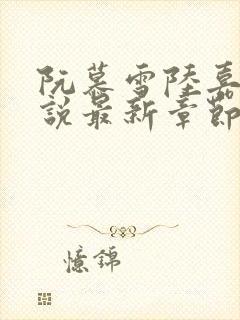 阮慕雪陸嘉
說最新章節
憶錦